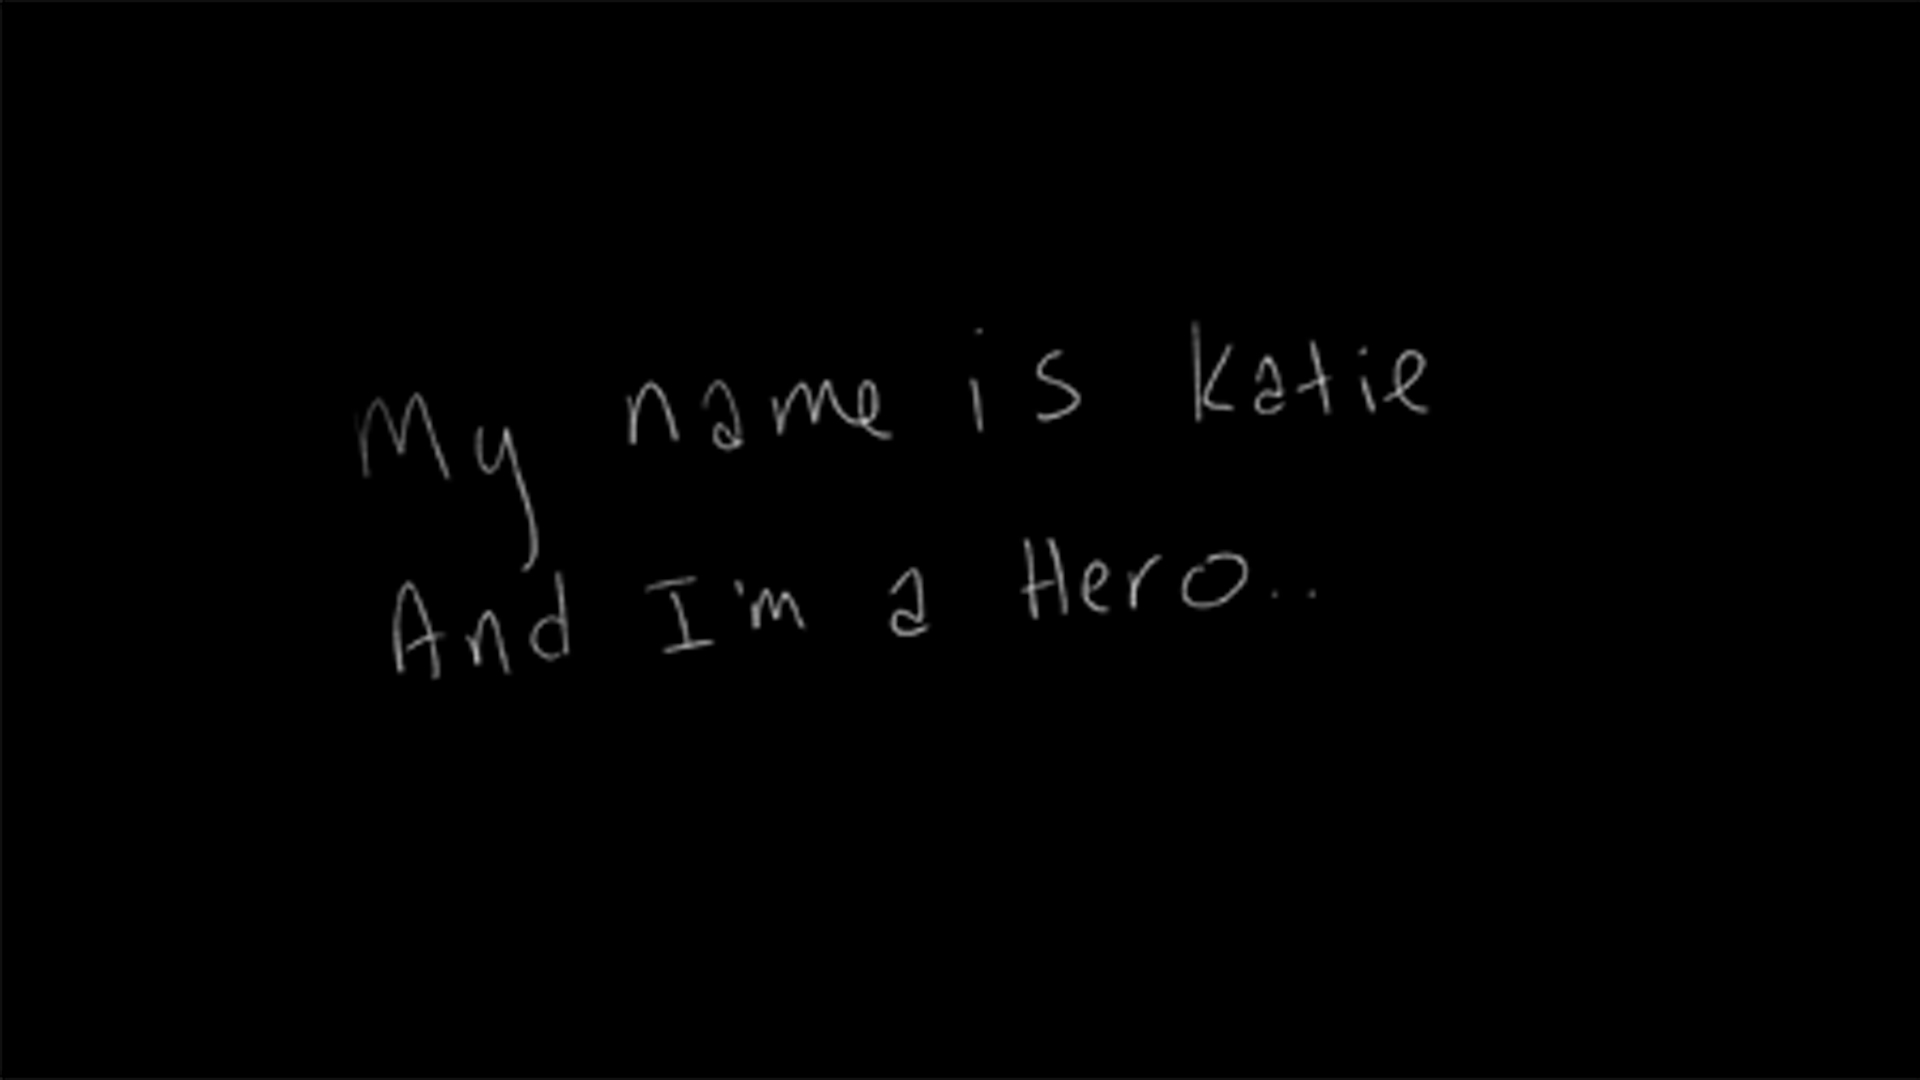 My name is Katie
And I'm a Hero..